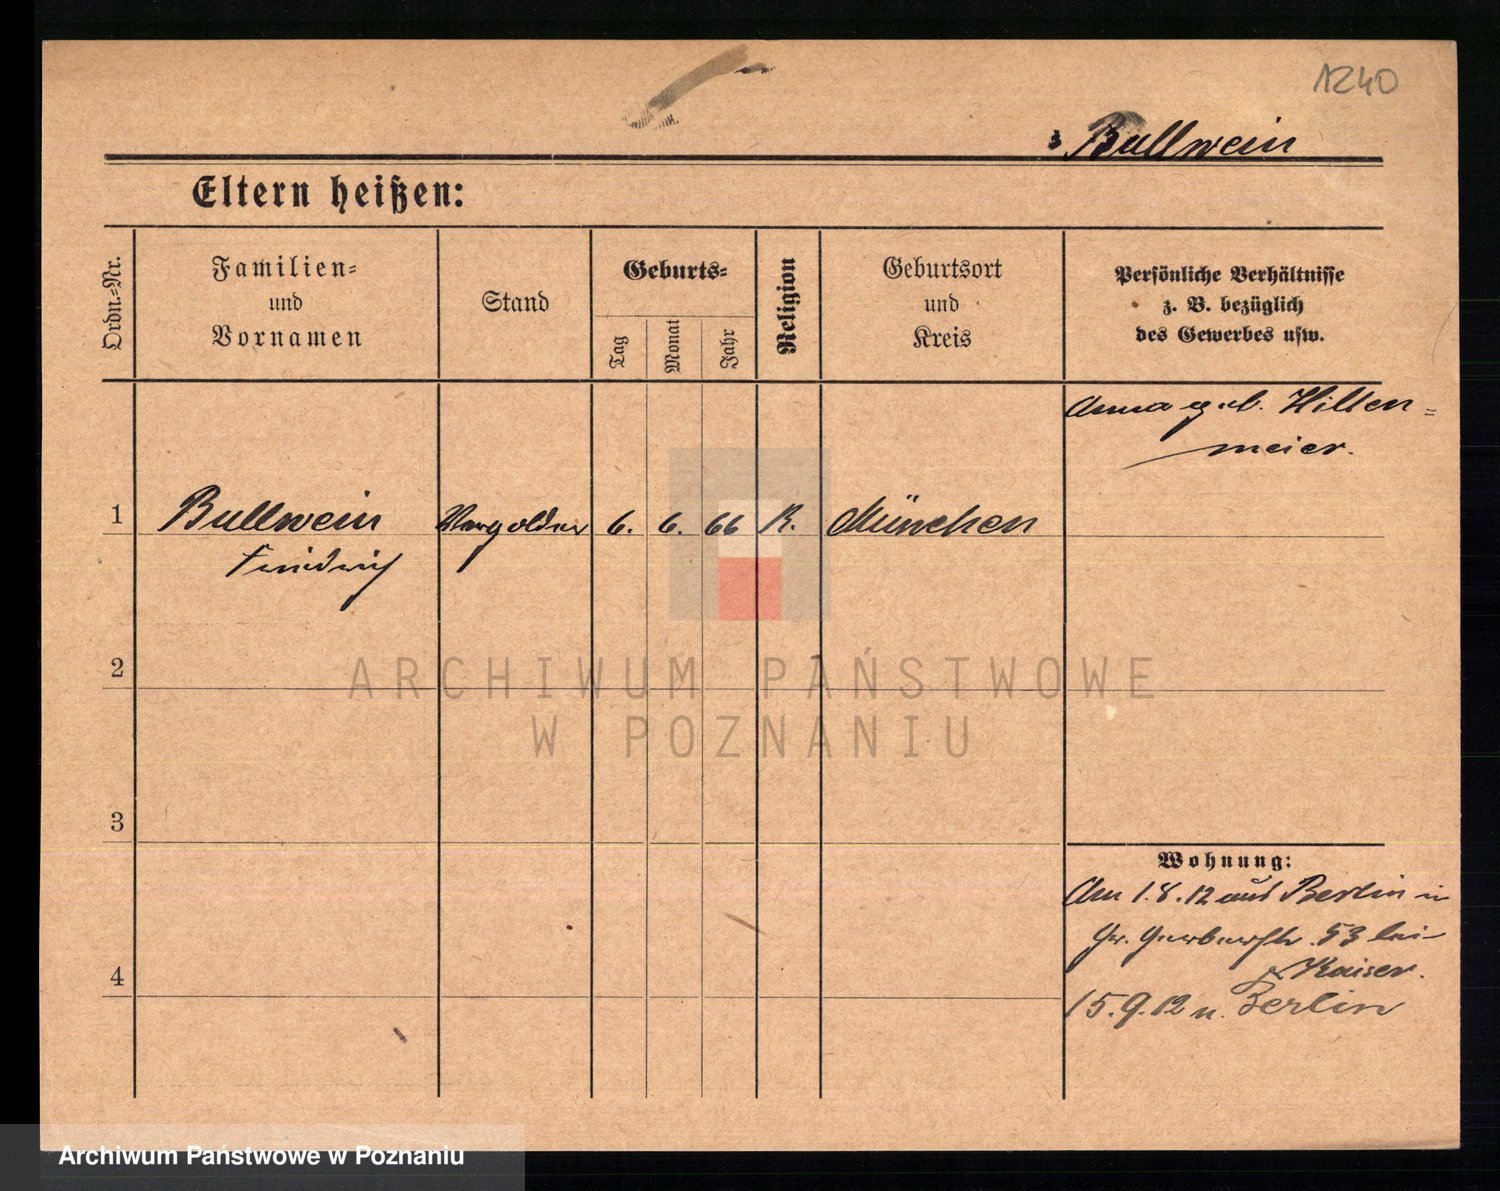 1240
Bullwein
Eltern heißen:
Ordn.-Nr.
Familien-
und
Vornamen
Stand
Geburts-
Tag
Monat
Jahr
Religion
Geburtsort
und
Kreis
Persönliche Verhältnisse
z. B. bezüglich
des Gewerbes usw.
Anna geb. Hilten-
meier.
1
Bullwein
Friedrich
Vergolder
6. 6. 66
K.
München
2
ARCHIWUM PAŃSTWOWE
W POZNANIU
3
Wohnung:
Am 1.8.12 aus Berlin in
Gr. Gerberstr. 53 bei
Kaiser.
4
15.9.12 n. Berlin
Archiwum Państwowe w Poznaniu